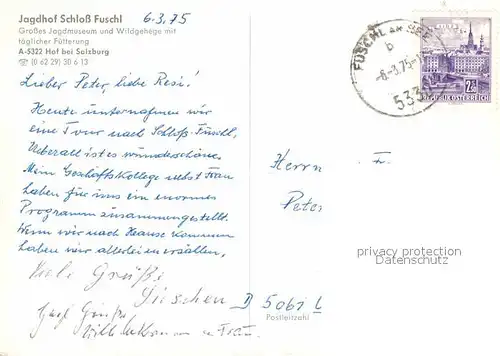 Jagdhof Schloß Fuschl
Großes Jagdmuseum und Wildgehege mit
täglicher Fütterung
A-5322 Hof bei Salzburg
☏ (0 62 29) 30 6 13
6.3.75
Lieber Peter, liebe Resi!
Heute unternahmen wir
eine Tour nach Schloß-Fuschl,
Ueberall ist es wunderschön.
Mein Geschäftskollege nebst Frau
haben für uns ein enormes
Programm zusammengestellt.
Wenn wir nach Hause kommen
haben wir allerlei zu erzählen.
Viele Grüße
Lieschen
Grüße
u. Frau
FUSCHL AM SEE
b
-6-3.75-
533
REPUBLIK ÖSTERREICH
Herrn F.
Peter
privacy protection
Datenschutz
D 5061 L
Postleitzahl